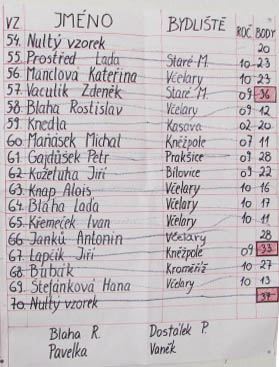 VZ JMÉNO BYDLIŠTĚ ROČ. BODY
54. Nultý vzorek 20
55. Prostřed Lada Staré M. 10 23
56 Manclova Kateřina Včelary 10 23
57. Vaculík Zdeněk Staré M. 09 36
58 Blaha Rostislav Včelary 09 12
59 Knedla Kasava 02 20
60 Maňásek Michal Kněžpole 07 11
61 Gajdůšek Petr Prakšice 09 28
62 Koželuha Jiří Bílovice 09 22
63 Knap Alois Včelary 10 16
64 Bláha Lada Včelary 10 17
65 Křemeček Ivan Včelary 10 11
66 Janků Antonin Včelary 28
67 Lapčík Jiří Kněžpole 09 33
68 Bubák Kroměříž 10 27
69 Štefánková Hana Včelary 10 13
70. Nultý vzorek 37
Blaha R. Dostálek P.
Pavelka Vaněk